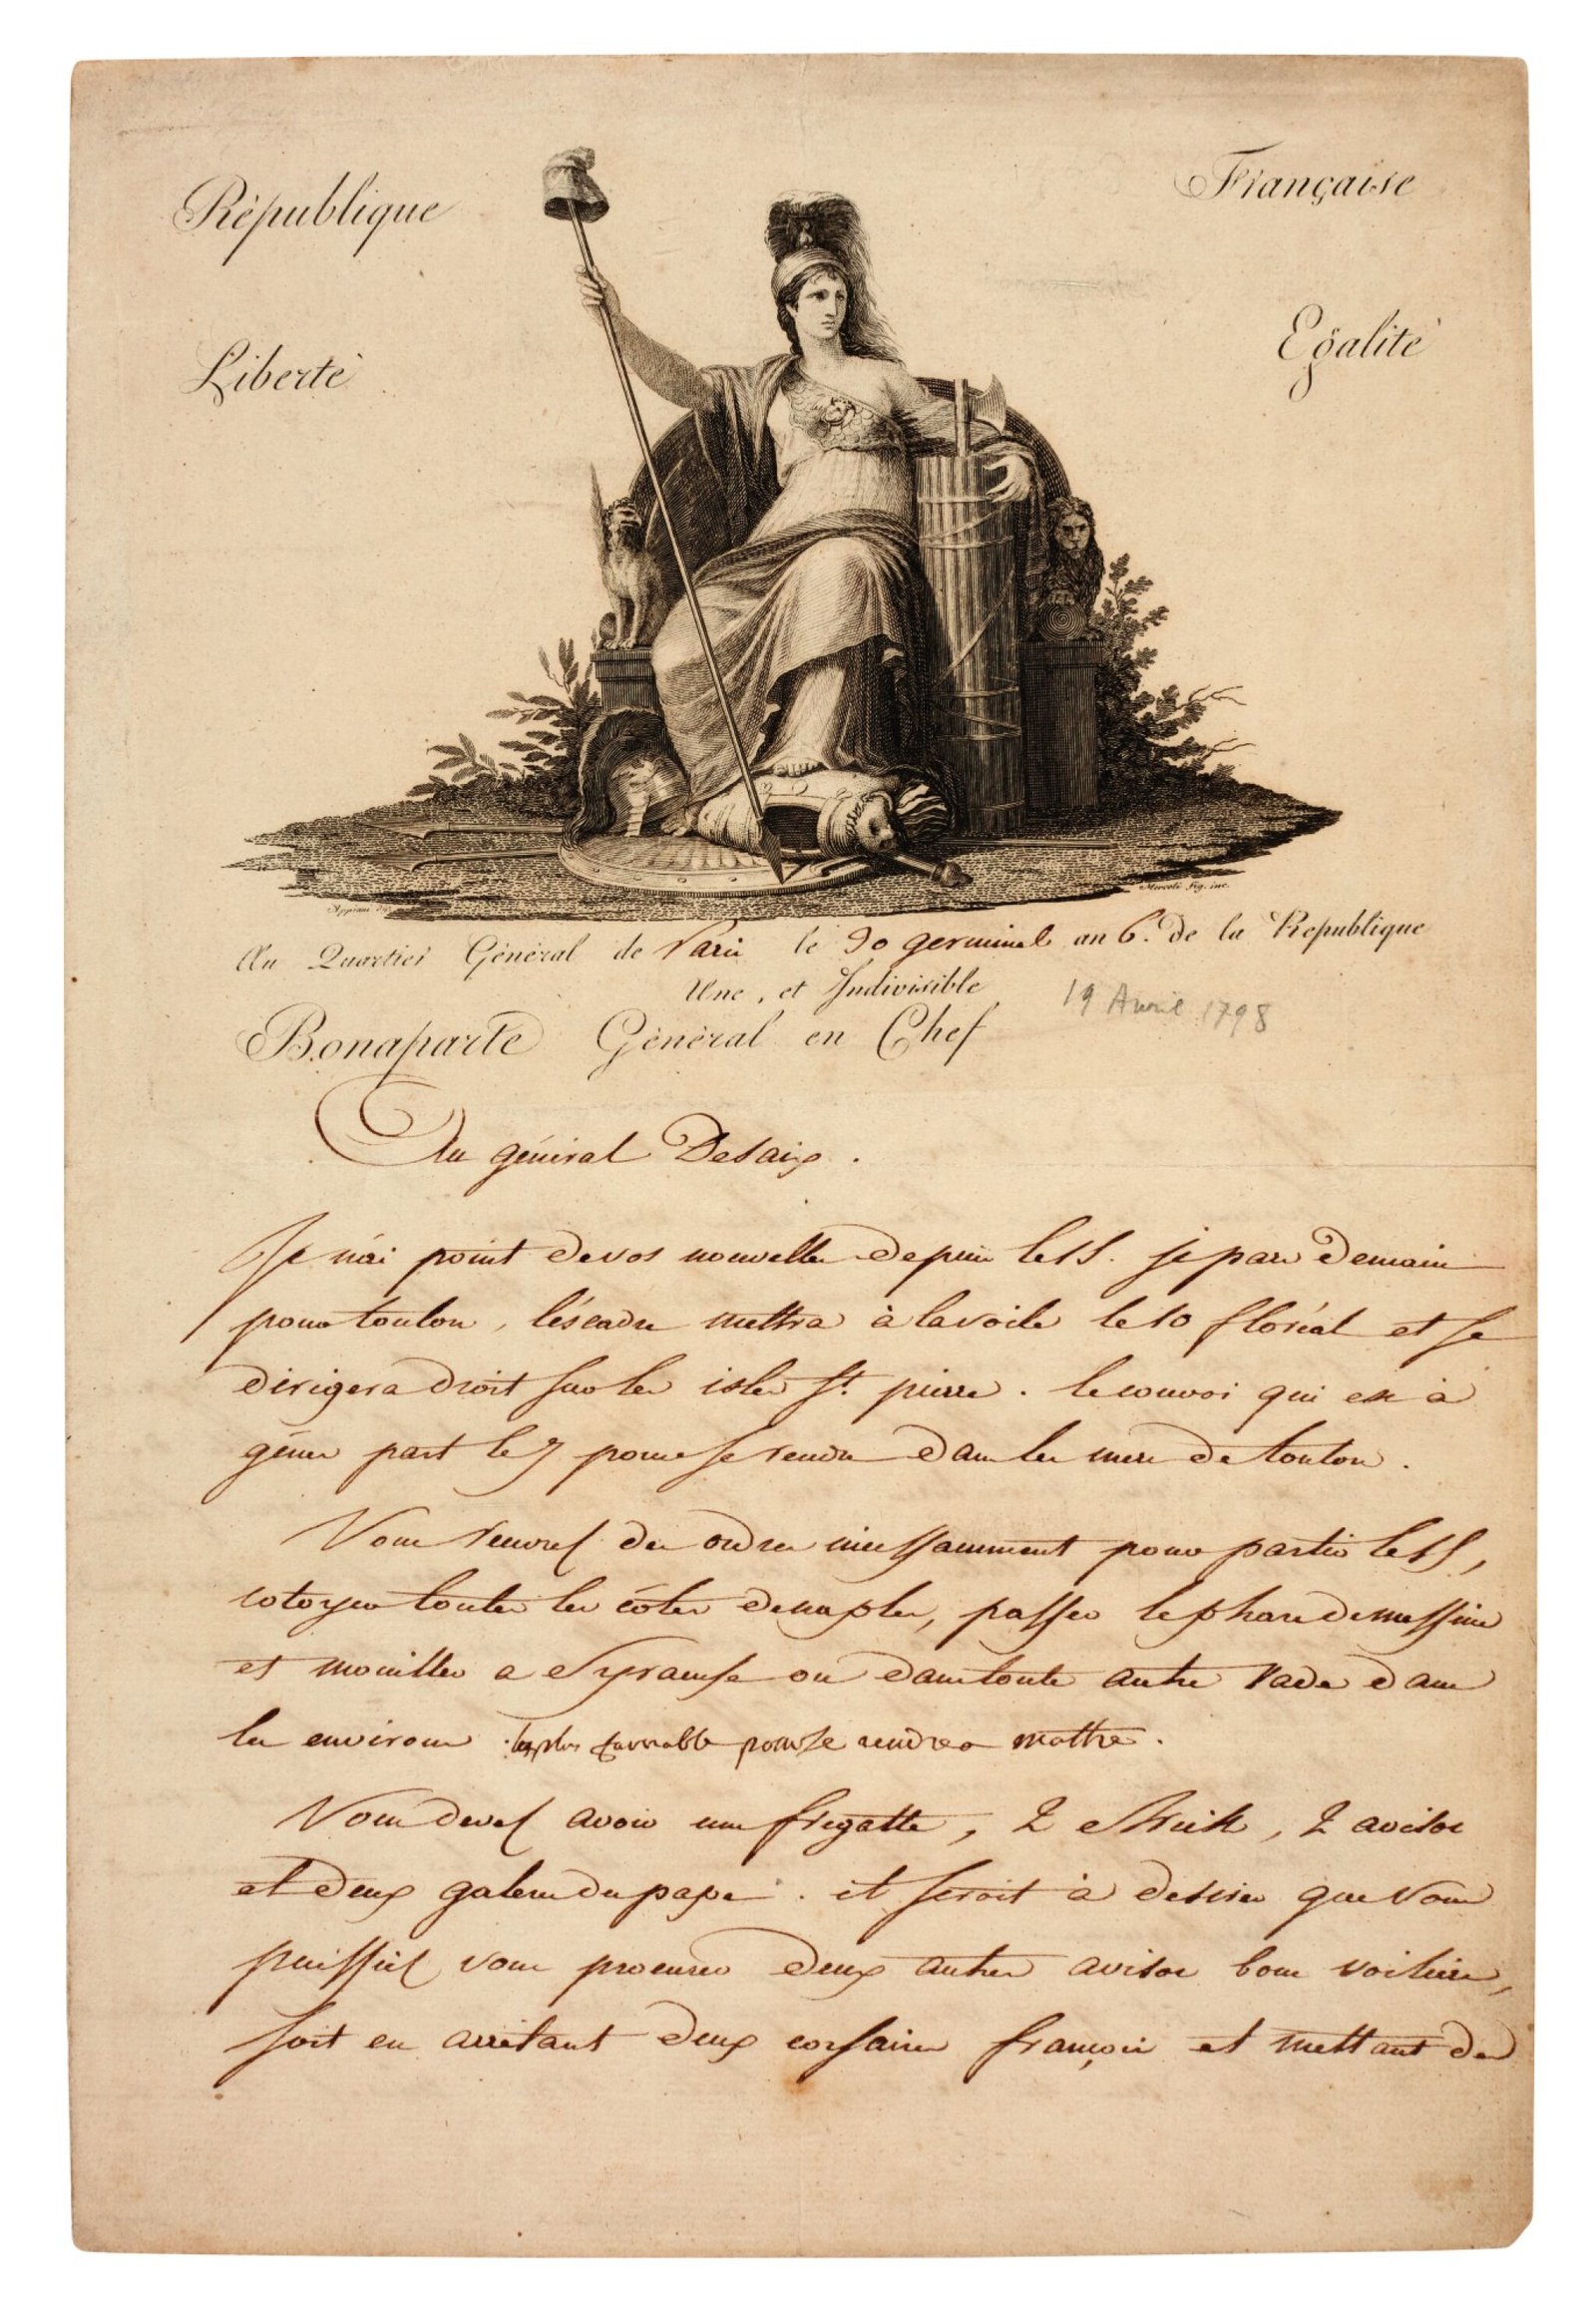 République Française
Liberté Egalité
Appiani
Mercoli fig. inc.
Au Quartier Général de Paris le 30 germinal an 6. de la Republique
Une, et Indivisible
19 Avril 1798
Bonaparte Général en Chef
Au général Desaix.
Je n'ai point de vos nouvelles depuis le 15. je pars demain
pour toulon, l'éscadre mettra à la voile le 10 floréal et se
dirigera droit sur les isles St. pierre. le convoi qui est à
gènes part le 7 pour se rendre dans les mers de toulon.
Vous recevrez des ordres incessamment pour partir le 15,
cotoyer toutes les côtes de naples, passer le phare de messine
et mouiller a Syracuse ou dans toute autre rade dans
les environs la plus favorable pour se rendre a malthe.
Vous devez avoir une frégatte, 2 bricks, 2 avisos
et deux galeres du pape. il seroit à desirer que vous
puissiez vous procurer deux autres avisos bons voiliers,
soit en arrêtant deux corsaires françois et mettant des